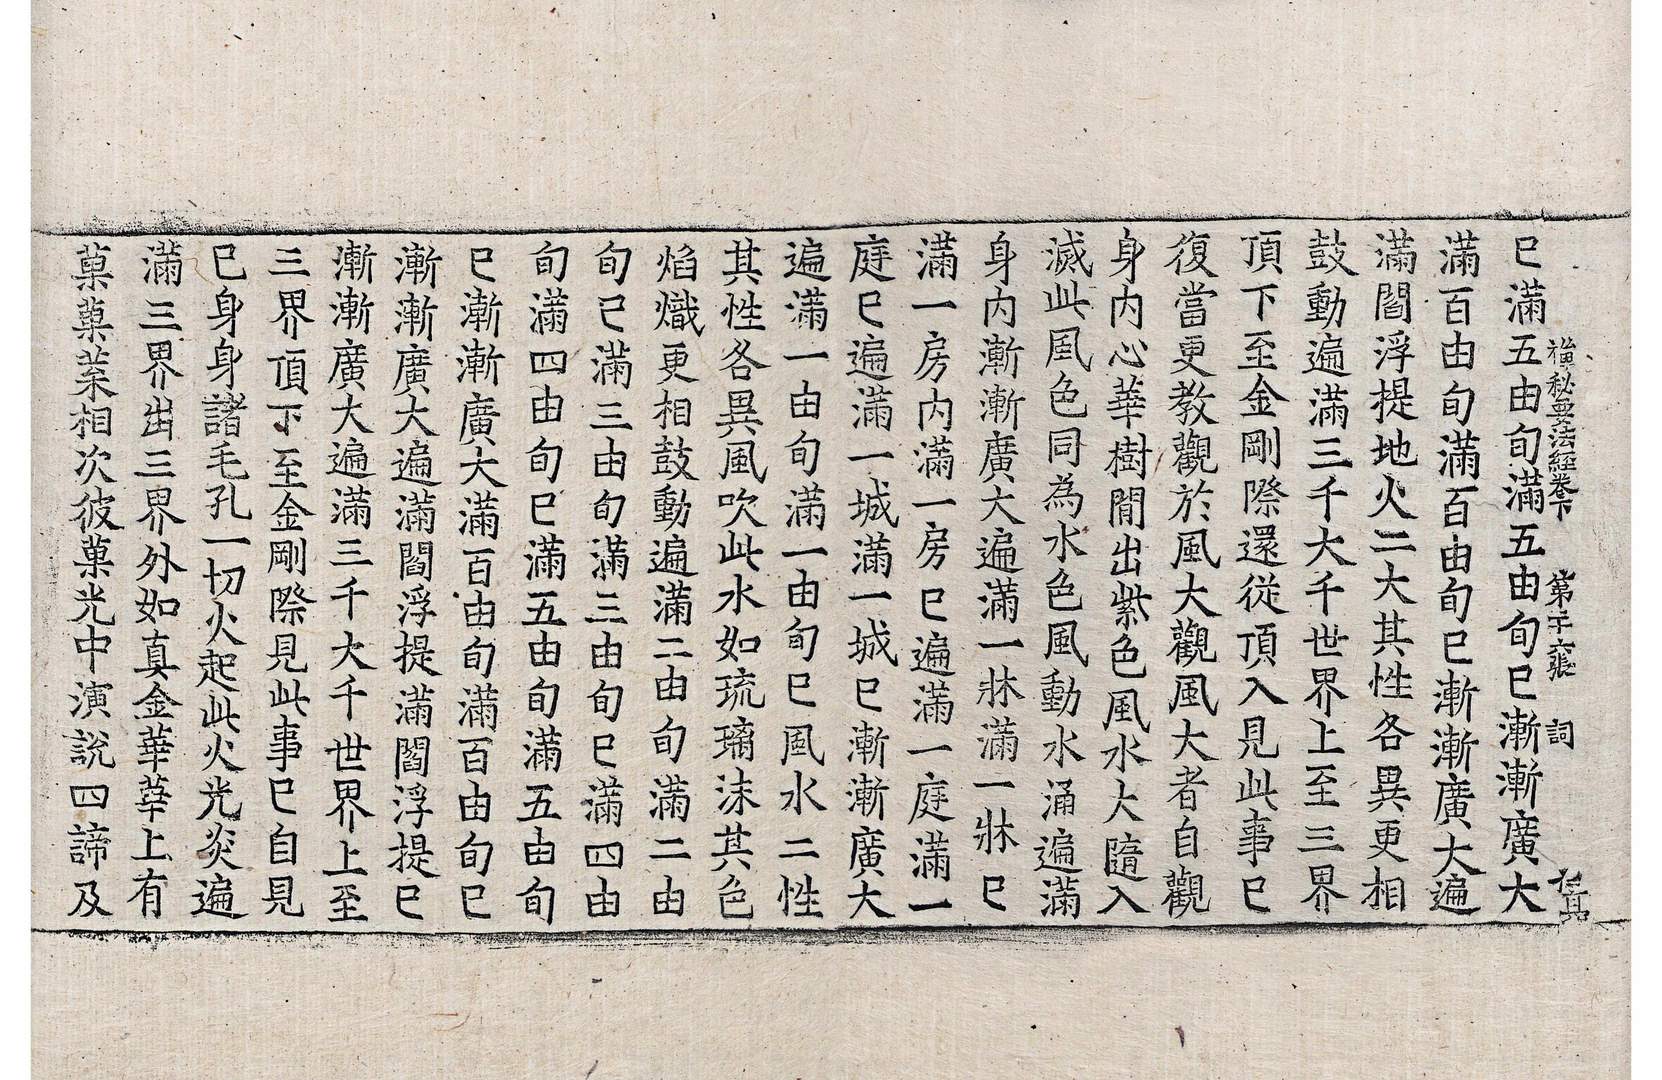 禪秘要法經卷下 第 張 詞
已滿五由旬滿五由旬已漸漸廣大
滿百由旬滿百由旬已漸漸廣大遍
滿閻浮提地火二大其性各異更相
鼓動遍滿三千大千世界上至三界
頂下至金剛際還從頂入見此事已
復當更教觀於風大觀風大者自觀
身內心華樹間出紫色風水大隨入
滅此風色同為水色風動水涌遍滿
身內漸漸廣大遍滿一牀滿一牀已
滿一房內滿一房已遍滿一庭滿一
庭已遍滿一城滿一城已漸漸廣大
遍滿一由旬滿一由旬已風水二性
其性各異風吹此水如琉璃沫其色
焰熾更相鼓動遍滿二由旬滿二由
旬已滿三由旬滿三由旬已滿四由
旬滿四由旬已滿五由旬滿五由旬
已漸漸廣大滿百由旬滿百由旬已
漸漸廣大遍滿閻浮提滿閻浮提已
漸漸廣大遍滿三千大千世界上至
三界頂下至金剛際見此事已自見
已身身諸毛孔一切火起此火光炎遍
滿三界出三界外如真金華華上有
菓菓葉相次彼菓光中演說四諦及